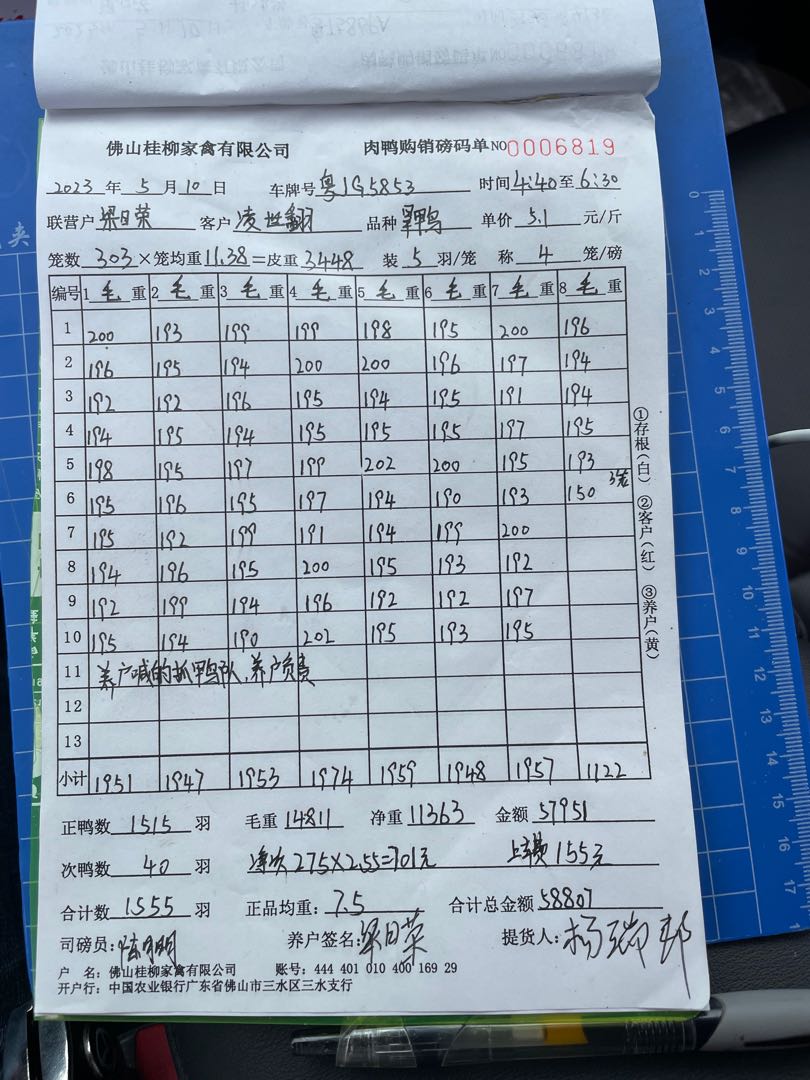 佛山桂柳家禽有限公司 肉鸭购销磅码单 NO 0006819
2023 年 5 月 10 日 车牌号 粤JG5853 时间 4:40 至 6:30
联营户 梁日荣 客户 凌世翻 品种 单价 5.1 元/斤
笼数 303 ×笼均重 11.38 =皮重 3448 装 5 羽/笼 称 4 笼/磅
编号 1 毛 重 2 毛 重 3 毛 重 4 毛 重 5 毛 重 6 毛 重 7 毛 重 8 毛 重
1 200 193 199 199 198 195 200 196
2 196 195 194 200 200 196 197 194
3 192 192 196 195 194 195 191 194
4 194 195 194 195 195 195 197 195
5 198 195 197 199 202 200 195 193
6 195 196 195 197 194 190 193 150 3笼
7 195 192 199 191 194 199 200
8 194 196 195 200 195 193 192
9 192 199 194 196 192 192 197
10 195 194 190 202 195 193 195
11 养户喊的抓鸭队,养户负责
12
13
小计 1951 1947 1953 1974 1959 1948 1957 1122
①存根(白) ②客户(红) ③养户(黄)
正鸭数 1515 羽 毛重 14811 净重 11363 金额 57951
次鸭数 40 羽 净次 275×2.55=701元 155元
合计数 1555 羽 正品均重: 7.5 合计总金额 58807
司磅员: 养户签名: 梁日荣 提货人:
户 名: 佛山桂柳家禽有限公司 账号: 444 401 010 400 169 29
开户行: 中国农业银行广东省佛山市三水区三水支行
0 1 2 3 4 5 6 7 8 9 10 11 12 13 14 15 16 17